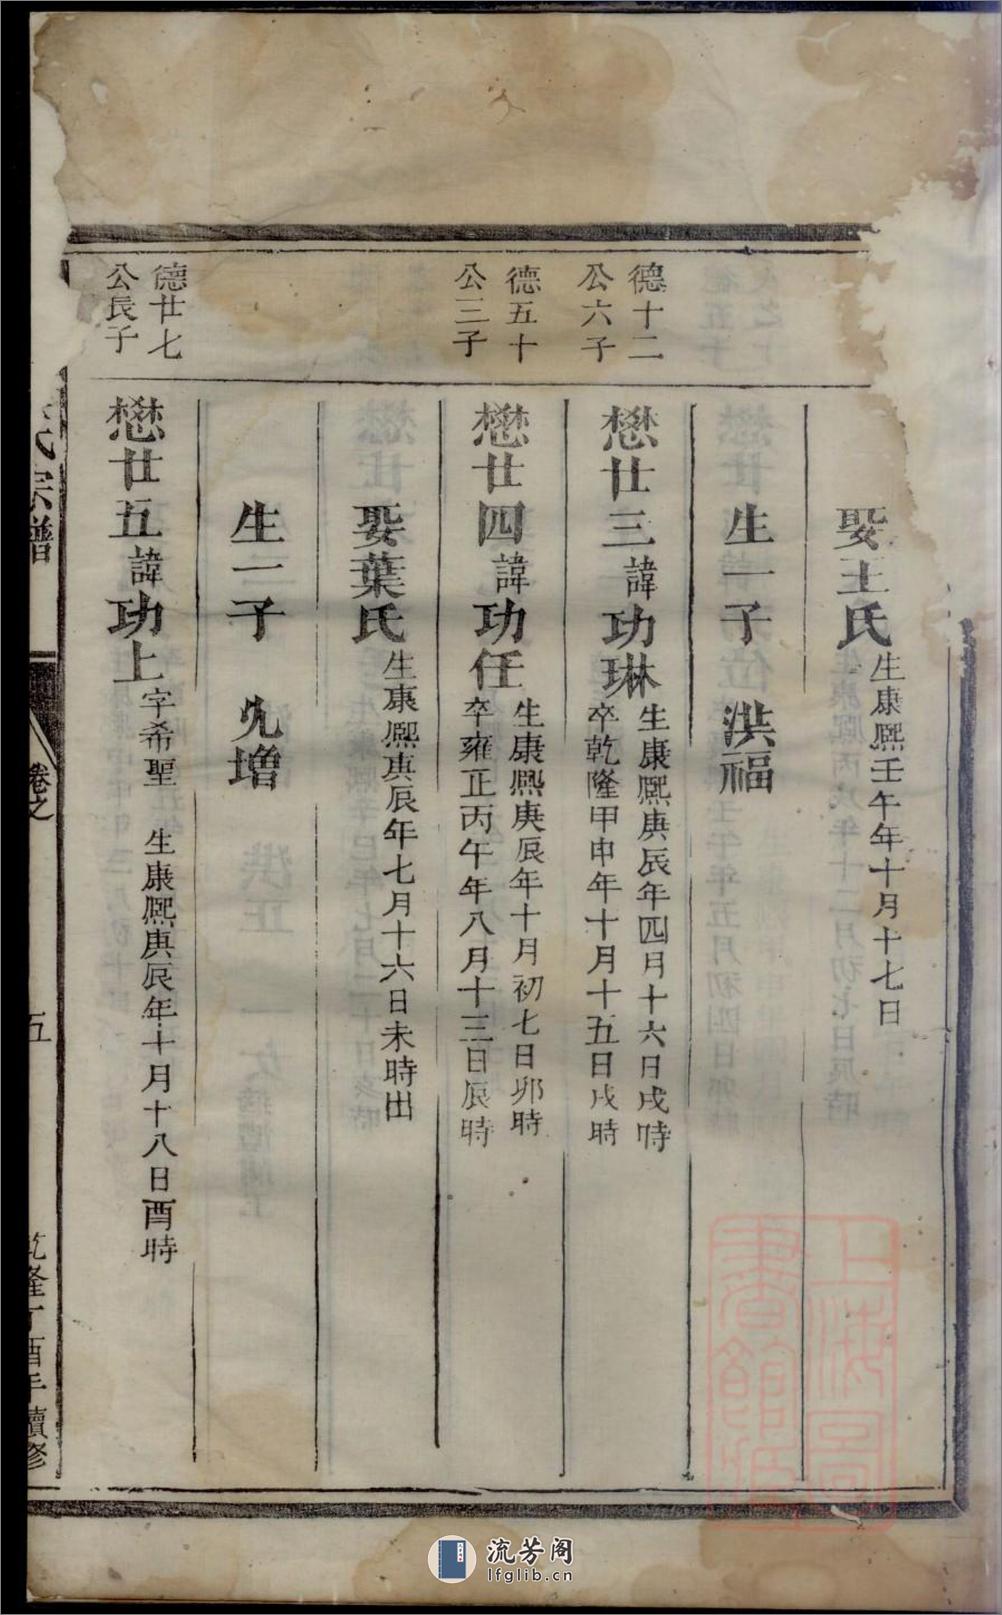 娶王氏生康熙壬午年十月十七日
生一子 洪福
德十二
公六子
懋廿三諱功琳
生康熙庚辰年四月十六日戌時
卒乾隆甲申年十月十五日戌時
德五十
公三子
懋廿四諱功任
生康熙庚辰年十月初七日卯時
卒雍正丙午年八月十三日辰時
娶葉氏生康熙庚辰年七月十六日未時出
生一子 增
德廿七
公長子
懋廿五諱功上字希聖 生康熙庚辰年十月十八日酉時
氏宗譜
卷之
五
乾隆丁酉年續修
上海圖
書館藏
流芳阁
lfglib.cn